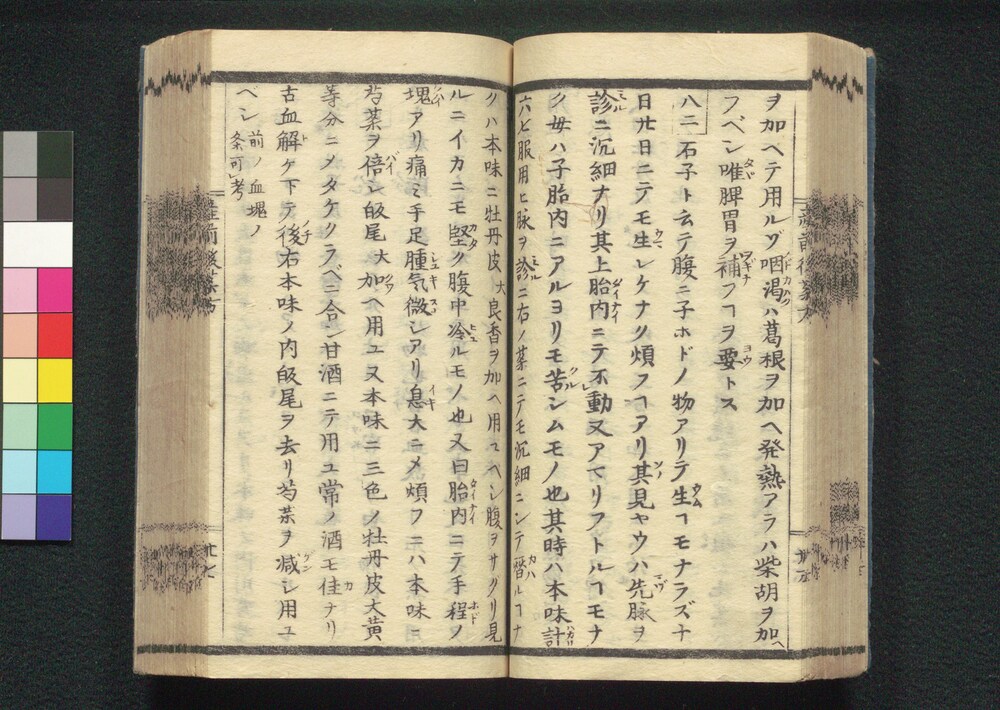 ヲ加ヘテ用ルゾ咽渇ハ葛根ヲ加ヘ発熱アラハ柴胡ヲ加ヘ
フベシ唯脾胃ヲ補フヿヲ要トス
八二石子ト云テ腹ニ子ホドノ物アリテ生ヿモナラズ十
日廿日ニテモ生レケナク煩フヿアリ其見ヤウハ先脉ヲ
診ニ沉細ナリ其上胎内ニテ不動又アマリフトルヿモナ
ク母ハ子胎内ニアルヨリモ苦シムモノ也其時ハ本味計
六七服用ヒ脉ヲ診ニ右ノ薬ニテモ沉細ニシテ替ルヿナ
クハ本味ニ牡丹皮大良香ヲ加ヘ用ユヘシ腹ヲサクリ見
ルニイカニモ堅ク腹中冷ルモノ也又曰胎内ニテ手程ノ
塊アリ痛ミ手足腫気微シアリ息大ニメ煩フニハ本味ニ
芍薬ヲ倍シ皈尾大加ヘ用ユ又本味ニ三色ノ牡丹皮大黄
等分ニメタケクラベニ合シ甘酒ニテ用ユ常ノ酒モ佳ナリ
古血解ケ下テ後右本味ノ内皈尾ヲ去リ芍薬ヲ減シ用ユ
ベシ前ノ血塊ノ
条可考